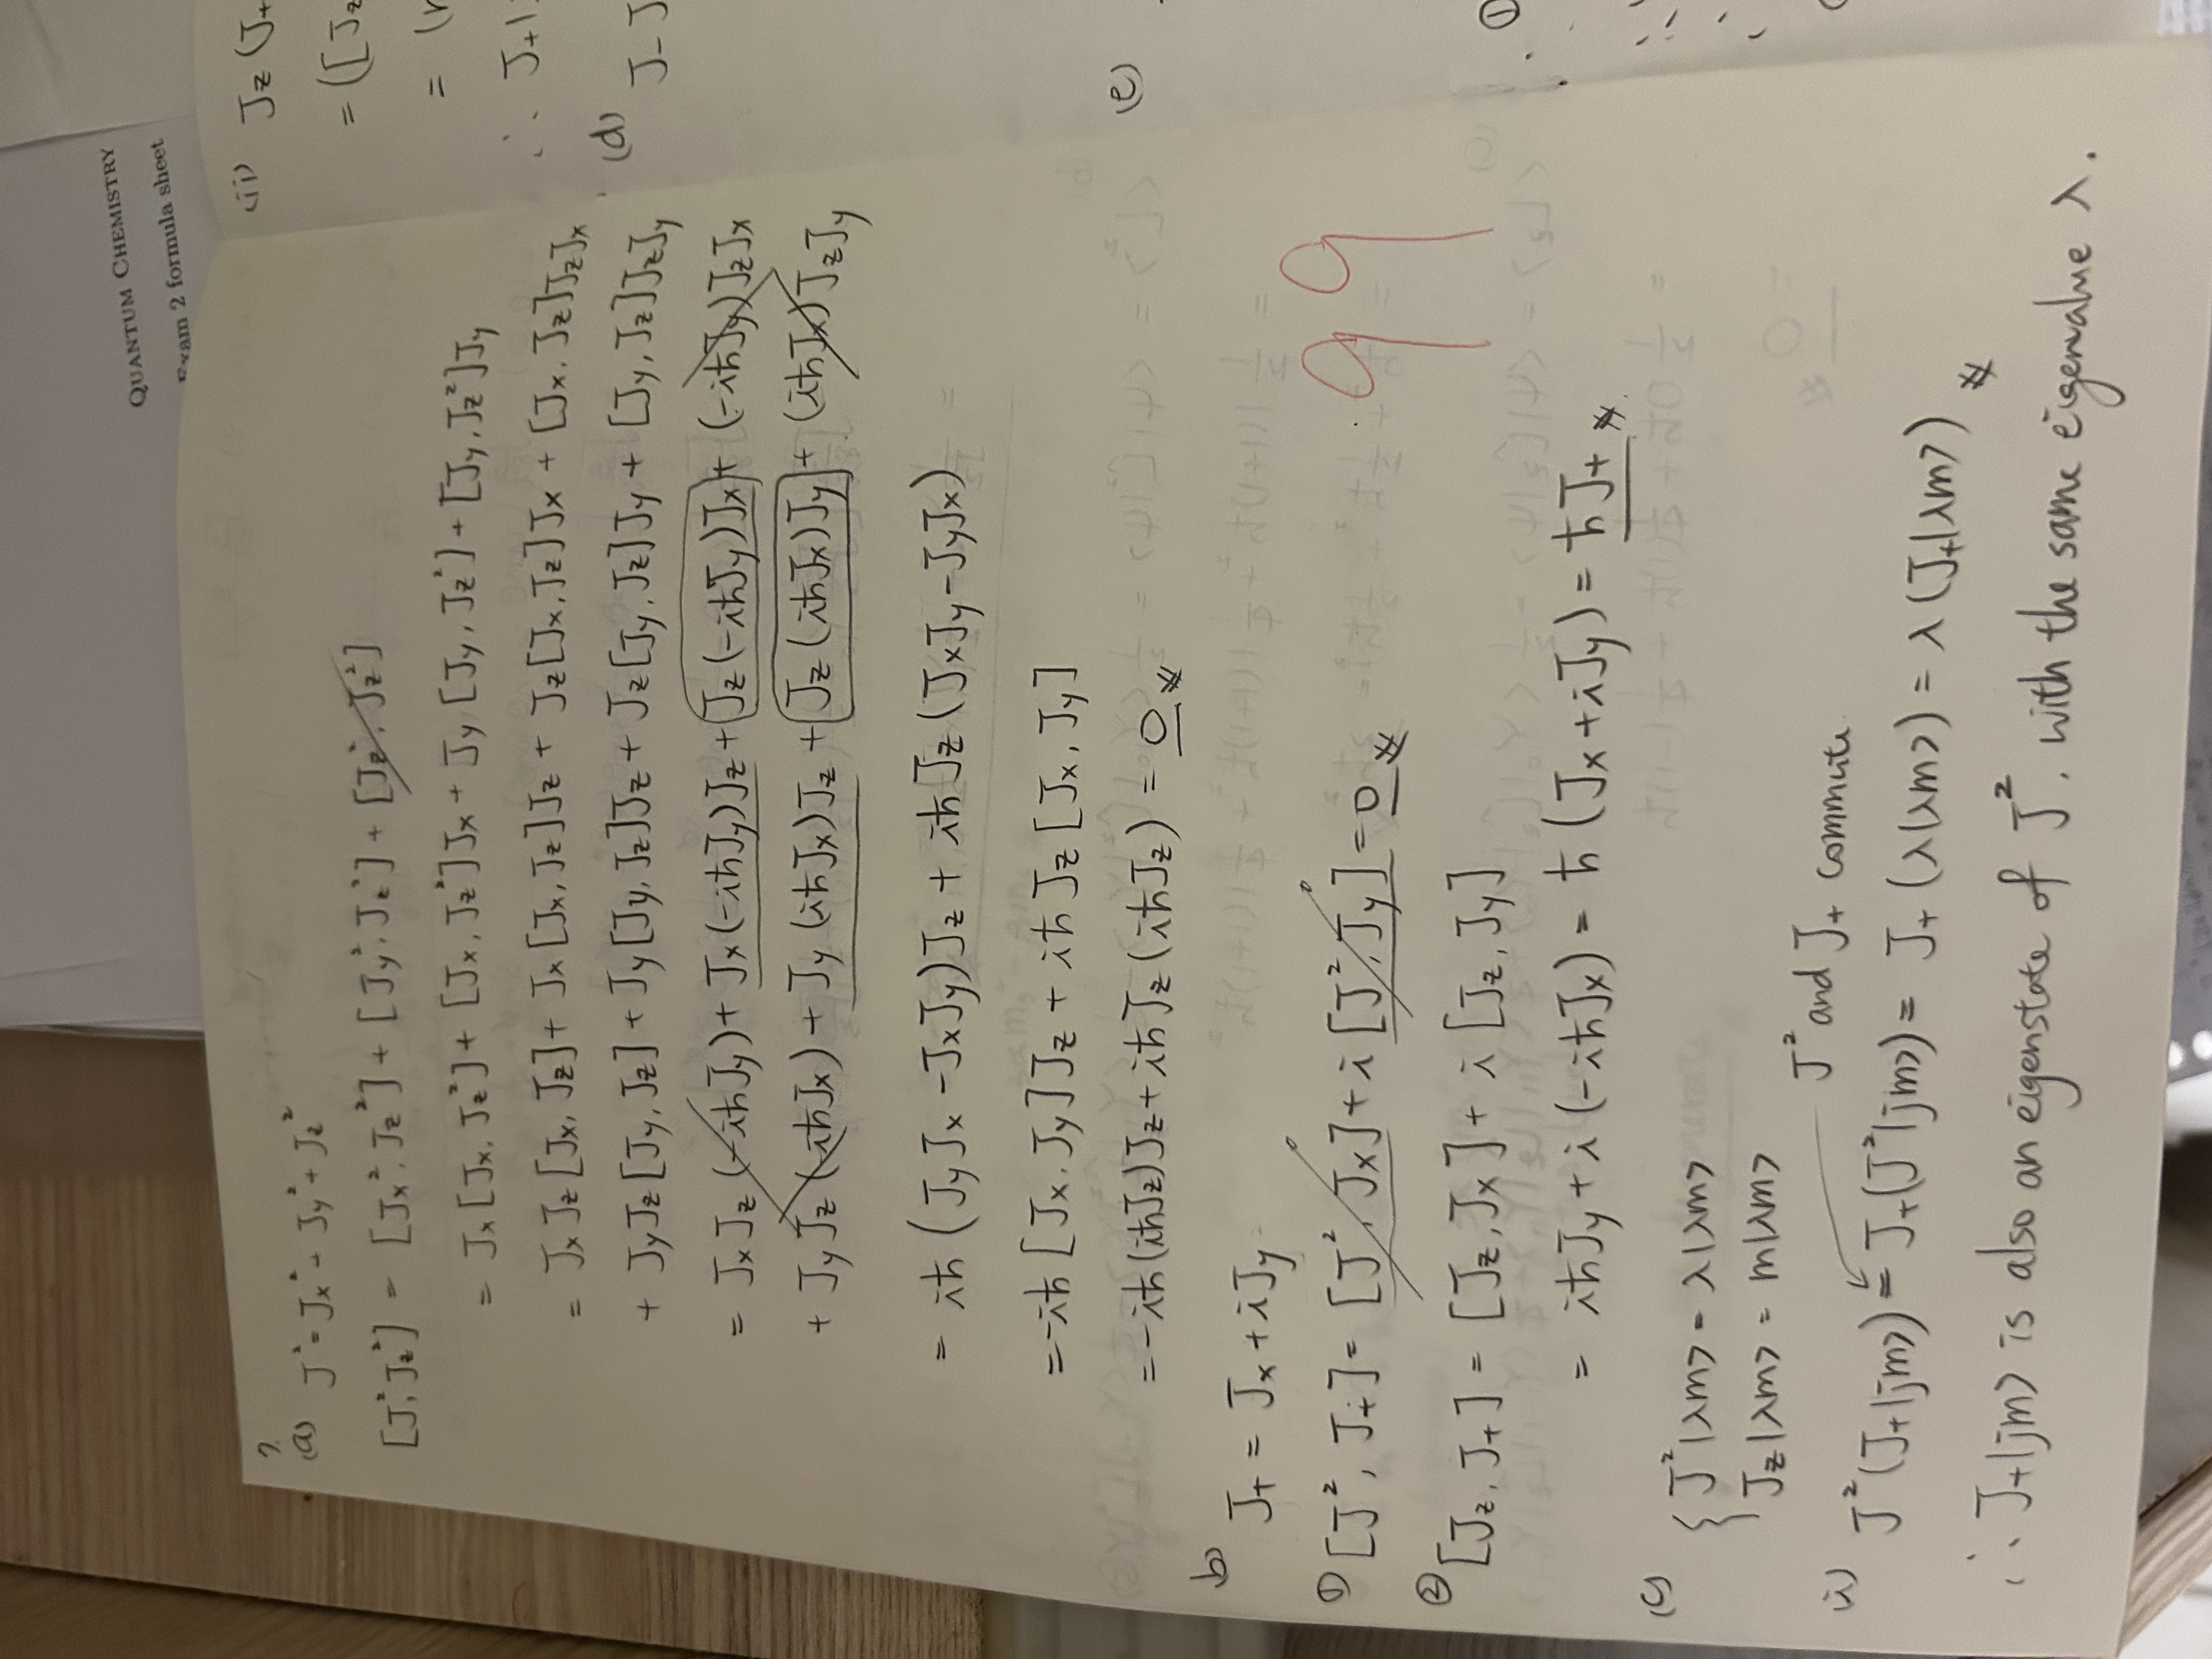 QUANTUM CHEMISTRY
Exam 2 formula sheet
2.
(a) J² = Jx² + Jy² + Jz²
[J², Jz²] = [Jx², Jz²] + [Jy², Jz²] + [Jz², Jz²]
= Jx[Jx, Jz²] + [Jx, Jz²]Jx + Jy[Jy, Jz²] + [Jy, Jz²]Jy
= JxJz[Jx, Jz] + Jx[Jx, Jz]Jz + Jz[Jx, Jz]Jx + [Jx, Jz]JzJx
+ JyJz[Jy, Jz] + Jy[Jy, Jz]Jz + Jz[Jy, Jz]Jy + [Jy, Jz]JzJy
= JxJz(-iħJy) + Jx(-iħJy)Jz + Jz(-iħJy)Jx + (-iħJy)JzJx
+ JyJz(iħJx) + Jy(iħJx)Jz + Jz(iħJx)Jy + (iħJx)JzJy
= iħ(JyJx - JxJy)Jz + iħJz(JxJy - JyJx)
= -iħ[Jx, Jy]Jz + iħJz[Jx, Jy]
= -iħ(iħJz)Jz + iħJz(iħJz) = 0
b) J+ = Jx + iJy
① [J², J+] = [J², Jx] + i[J², Jy] = 0
99
② [Jz, J+] = [Jz, Jx] + i[Jz, Jy]
= iħJy + i(-iħJx) = ħ(Jx + iJy) = ħJ+
(c) J²|λm> = λ|λm>
Jz|λm> = m|λm>
J² and J+ commute
(i) J²(J+|jm>) = J+(J²|jm>) = J+(λ|λm>) = λ(J+|λm>)
∴ J+|jm> is also an eigenstate of J², with the same eigenvalue λ.
(ii) Jz(J+
= ([Jz
= (
∴ J+|
(d)
J-J
(e)
①